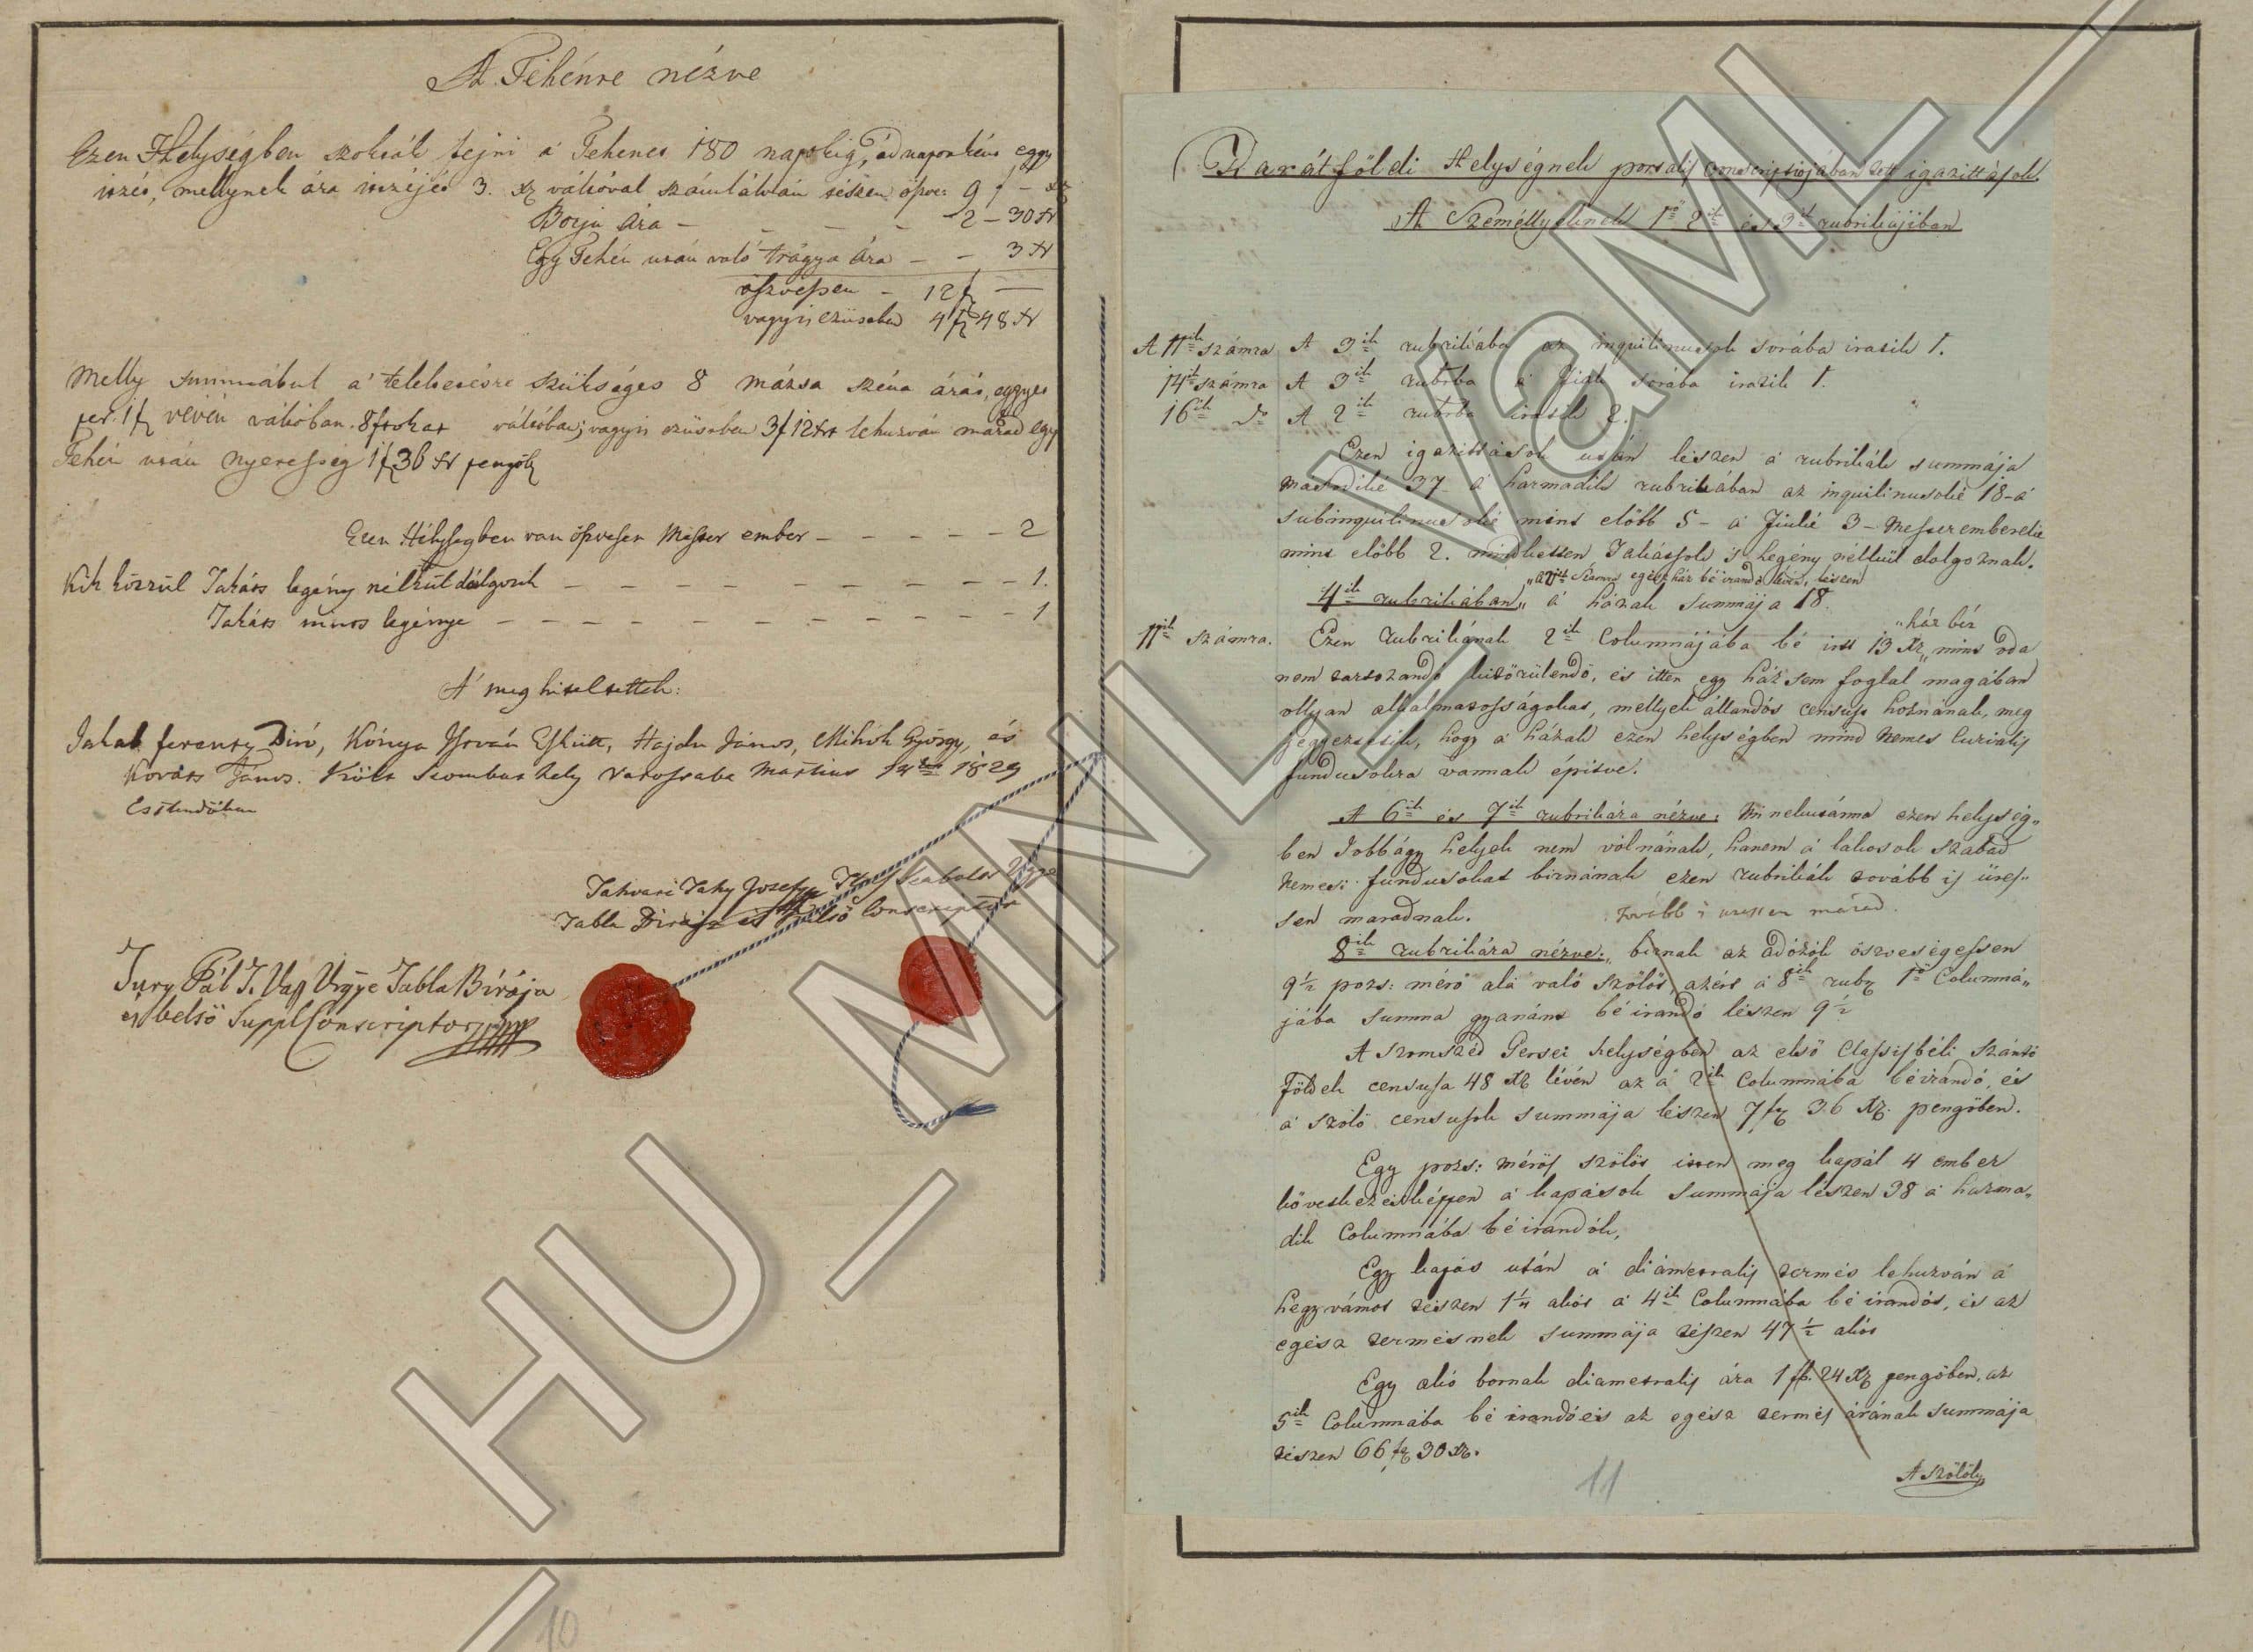 A Tehénre nézve
Ezen Helységben szokták fejni a' Tehenet 180 napokig, ád naponként eggy
itzét, mellynek ára itzéjét 3. xr váltóval számlálván tészen öszve: 9 f – xr
Borju ára – – – – 2 – 30 xr
Egy Tehén után való trágya ára – – 3 xr
öszvessen – 12 f –
vagyis ezüstben 4 f 48 xr
Melly summábul a' teleltetésre szükséges 8 mázsa széna árát, eggyet
per. 1 f vévén váltóban. 8 frtokat váltóban; vagyis ezüstben 3 f 12 xrt lehuzván marad egy
Tehén után nyeresség 1 f 36 xr pengő
Ezen Hélységben van öszvesen Mester ember – – – – – 2
Kik közzül Takáts legény nélkül dolgozik – – – – – – – – – – – 1.
Takáts nints legénye – – – – – – – – – – – 1
A' meg hiteltettek:
Jakab ferentz Biró, Kónya István Eskütt, Hajdu János, Mihók György, és
Kováts János. Költ Szombathely Varossaba Martius 14dik 1829
Esztendőben
Takvari Taky Jozef Szabolcs Vgye
Tabla Birája és külső Conscriptor
Jury Pál T. Vas Vrgye Tabla Birája
és belső Suppl Conscriptor
10
Barátföldi Helységnek portalis conscriptiojában tett igazittások.
A Személlyeknek 1ő 2ik és 3ik rubrikájiban
A 11ik számra A 3ik rubrikába az inquilinusok sorába iratik 1.
14ik számra A 3ik rubrba a' Fiak sorába iratik 1.
16ik do A 2ik rubrba iratik 2.
Ezen igazittások után lészen a' rubrikák summája
masodiké 37 – a' harmadik rubrikában az inquilinusoké 18 – a'
subinquilinusoké mint előbb 5 – a' Fiuké 3 – Mesterembereké
mint előbb 2. mindketten Takátsok 's legény nélkül dolgoznak.
számra egész ház béirandó lévén, lészen
4ik rubrikában„ a' házak summája 18.
„ház bér
11ik számra. Ezen rubrikának 2ik Columnájába bé irtt 13 xr„ mint oda
nem tartozandó kitörülendő, és itten egy ház sem foglal magában
ollyan alkalmatosságokat, mellyek állandós censust hoznának, meg
jegyeztetik, hogy a' házak ezen helységben mind Nemes Curialis
fundusokra vannak épitve.
A 6ik és 7ik rubrikára nézve: Minekutánna ezen helység„
ben Jobbágy helyek nem vólnának, hanem a' lakosok szabad
Nemesi fundusokat birnának ezen rubrikák tovább is üres„
sen maradnak. tovább is üressen marad.
8ik rubrikára nézve: birnak az adózók öszvességessen
9½ pozs: mérő alá való szőlőt, azért a' 8ik rubr 1ő Columná„
jába summa gyanánt bé irandó lészen 9½
A szomszéd Gersei helységben az első Classisbéli szántó
földek censusa 48 xr lévén az a' 2ik Columnába béirandó, és
a' szőlő censusok summája lészen 7 fr 36 xr. pengőben.
Egy pozs: mérős szőlőt itten meg kapál 4 ember
következésképpen a' kapások summája lészen 38 a' harma„
dik Columnába bé irandók,
Egy kapás után a' diametralis termés lehuzván a'
hegyvámot tészen 1¼ akót a' 4ik Columnába bé irandót, és az
egész termésnek summája tészen 47½ akót
Egy akó bornak diametralis ára 1 fr. 24 xr pengőben, az
5ik Columnába bé irandó és az egész termés árának summája
tészen 66 fr 30 xr.
A szőlők
11
HU_MNL_VaML_